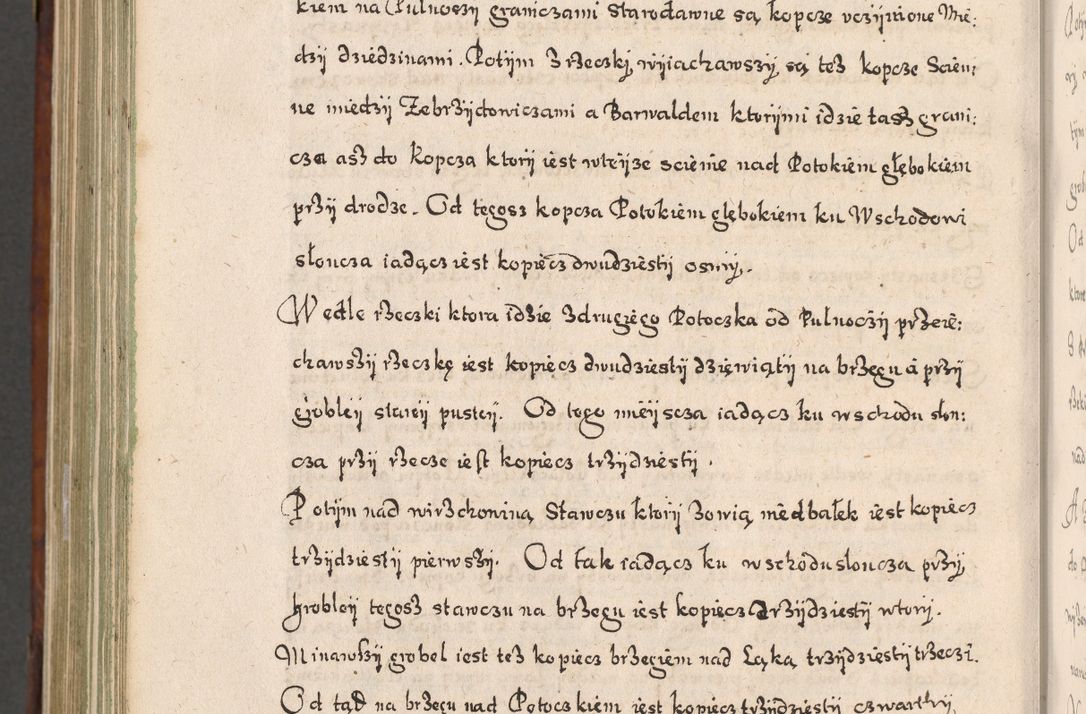 kiem na Pulnoszÿ graniczami starodawne są kopcze vczÿnione Mie:
dzÿ dziedzinami. Potÿm z rzeczkÿ wÿiachawszÿ są tez kopcze Scien:
ne miedzÿ Zebrzÿdowiczami a Barwaldem ktorÿmi idzie tasz grani:
cza asz do kopcza ktorÿ iest wteÿze scienie nad Potokiem głębokiem
przÿ drodze. Od tegosz kopcza Potokiem głębokiem ku Wschodowi
słoncza iadącz iest kopiecz dwudziestÿ osmÿ.
Wedle rzeczki ktora idzie z drugiego Potoczka od Pulnoczÿ przeie:
chawszÿ rzeczkę iest kopiecz dwudziestÿ dziewiątÿ na brzegu a przÿ
grobleÿ stareÿ pusteÿ. Od tego mieÿscza iadącz ku wschodu słon:
cza przÿ rzecze iest kopiecz trzÿdziestÿ.
Potÿm nad wirzchowiną Stawczu ktorÿ zowią niedbałek iest kopiecz
trzÿdziestÿ pierwszÿ. Od tak iadącz ku wschodu słoncza przÿ
grobleÿ tegosz stawczu na brzegu iest kopiecz trzÿdziestÿ wtorÿ.
Minawszÿ grobel iest tez kopiecz brzegiem nad Łąką trzÿdziestÿ trzeczi.
Od tąd na brzegu nad Potoczkiem iest kopiecz trzÿdziestÿ czwartÿ,